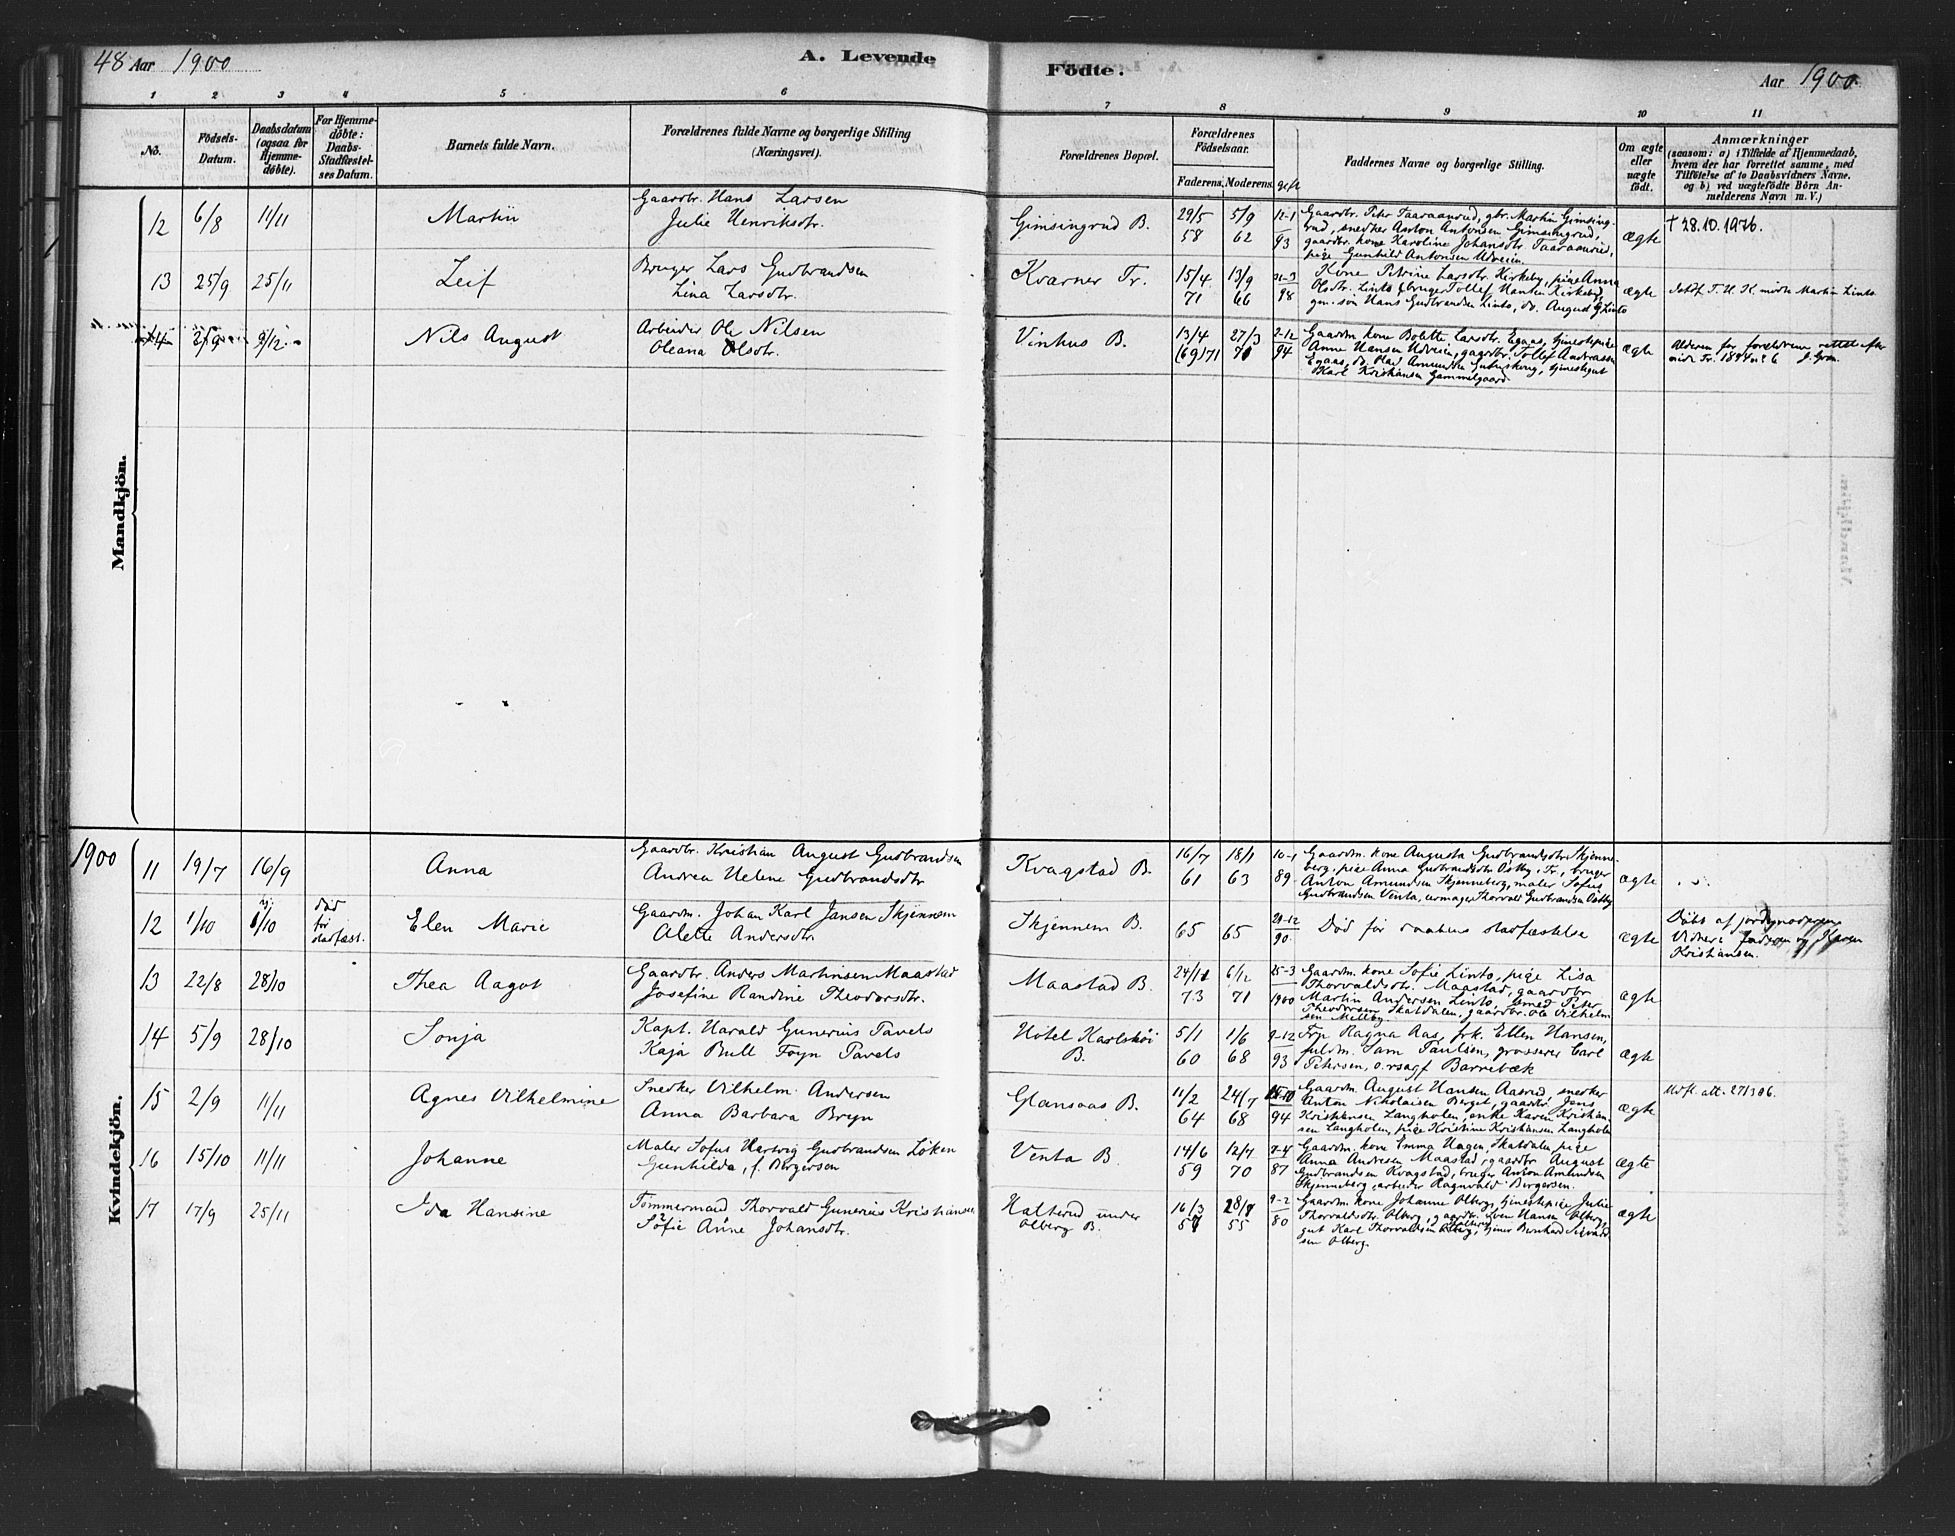 48 Aar 1900
A. Levende
Fødte.
Aar 1900
1 2 3 4 5 6 7 8 9 10 11
No.
Födsels-
Datum.
Daabsdatum
(ogsaa for
Hjemme-
döbte).
For Hjemme-
döbte:
Daabs-
Stadfæstel-
ses Datum.
Barnets fulde Navn.
Forældrenes fulde Navne og borgerlige Stilling
(Næringsvei).
Forældrenes Bopæl.
Forældrenes
Födselsaar.
Faderens. Moderens.
gift
Faddernes Navne og borgerlige Stilling.
Om ægte
eller
uægte
födt.
Anmærkninger
(saasom: a) i Tilfælde af Hjemmedaab,
hvem der har forrettet samme, med
Tilföielse af to Daabsvidners Navne,
og b) ved uægtefödte Börn An-
melderens Navn m. V.)
Mandkjön.
12 6/8 11/11 Martin
Gaardbr. Hans Larsen
Julie Henriksdtr.
Gimsingrud B.
29/5 58 5/9 62 12-1 93
Gaardbr. Peter Taaraanrud, gbr. Martin Gimsing-
rud, snedker Anton Antonsen Gimsingrud,
gaardbr. kone Karoline Johansdtr. Taaraanrud,
pige Gunhild Antonsen Udveien.
ægte
† 28.10.1976.
13 25/9 25/11 Leif
Bruger Lars Gudbrandsen
Lina Larsdtr.
Kvarner Tr.
15/4 71 13/9 66 31-3 98
Kone Petrine Larsdtr. Kirkeby, pige Anna
Olsdtr. Linto, bruger Tollef Hansen Kirkeby,
gm. søn Hans Gudbrandsen Linto, do. August G. Linto
ægte
14 25/9 9/12 Nils August
Arbeider Ole Nilsen
Oleana Olsdtr.
Vinhus B.
13/4 (69) 71 27/3 71 2-12 94
Gaardm. kone Bolette Larsdtr. Egaas, tjenestepige
Anne Hansen Udveien, gaardbr. Tollef Andreassen
Egaas, do. Olaf Amundsen, tjenestegut
Karl Kristiansen Gammelgaard
ægte
Alderen for foreldrene rettet efter
min. Tr. 1894 nº 6
1900
Kvindekjön.
11 19/7 16/9 Anna
Gaardbr. Kristian August Gudbrandsen
Andrea Helene Gudbrandsdtr
Kragstad B.
16/7 61 18/1 63 10-1 89
Gaardm. kone Augusta Gudbrandsdtr. Skjenne-
berg, pige Anna Gudbrandsdtr. Østby, Tr., bruger
Anton Amundsen Skjenneberg, maler Sofus
Gudbrandsen Venta, urmager Thorvald Gudbrandsen Østby
ægte
12 1/10 hj. 6/10
død
før
stadfæst.
Elen Marie
Gaardm. Johan Karl Jansen Skjennem
Alette Andersdtr.
Skjennem B.
65 65 28-12 90.
Død før daabens stadfæstelse
ægte
Døbt af jordmoderen
Vidner: faderen og Karen
Kristiansen.
13 22/8 28/10 Thea Aagot
Gaardbr. Anders Martinsen Maastad
Josefine Randine Theodorsdtr.
Maastad B.
24/11 73 6/12 71 25-3 1900
Gaardm. kone Sofie Linto, pige Lisa
Thorvaldsdtr. Maastad, gaardbr.
Martin Andersen Linto, smed Peter
Theodorsen Skatdalen, gaardbr. Ole Vilhelm
sen Melleby.
ægte
14 5/9 28/10 Sonja
Kapt. Harald Gunerius Pavels
Kaja Bull Foyn Pavels
Hotel Karlshøi
B.
5/1 60 1/6 68 9-12 93
Frp Ragna Aas, frk. Ellen Hansen,
fuldm. Sam Paulsen, grosserer Carl
Petersen, o.rsagf Barrebæk
ægte
15 2/9 11/11 Agnes Vilhelmine
Snedker Vilhelm Andersen
Anna Barbara Bryn
Glansaas B.
11/2 64 24/7 68 25-10 94
Gaardm. August Hansen Aasrud, snedker
Anton Nikolaisen Berget, gaardbr. Jens
Kristiansen Langholen, enke Karen Kristian
sen Langholen, pige Kristine Kristiansen Langholen
ægte
Utfl. att. 27/3 06.
16 15/10 11/11 Johanne
Maler Sofus Hartvig Gudbrandsen Løken
Gunhilda, f. Børgersen
Venta B.
14/6 59 12/7 70 7-4 87
Gaardm. kone Emma Hagen, Skatdalen, pige
Anna Andresen Maastad, gaardbr. August
Gudbrandsen Kragstad, bruger Anton Amundsen
Skjenneberg, arbeider Ragnvald Børgersen.
ægte
17 17/9 25/11 Ida Hansine
Tømmermand Thorvald Gunerius Kristiansen
Sofie Anne Johansdtr.
Halterud under
Olberg B.
16/3 57 28/7 55 9-2 80
Gaardm. kone Johanne Olberg, tjenestepige Julie
Thorvaldsdtr. Olberg, gaardbr. Sven Hansen Olberg,
gut Karl Thorvaldsen Halterud, tjener Bernhard Sigvard
sen Olberg.
ægte